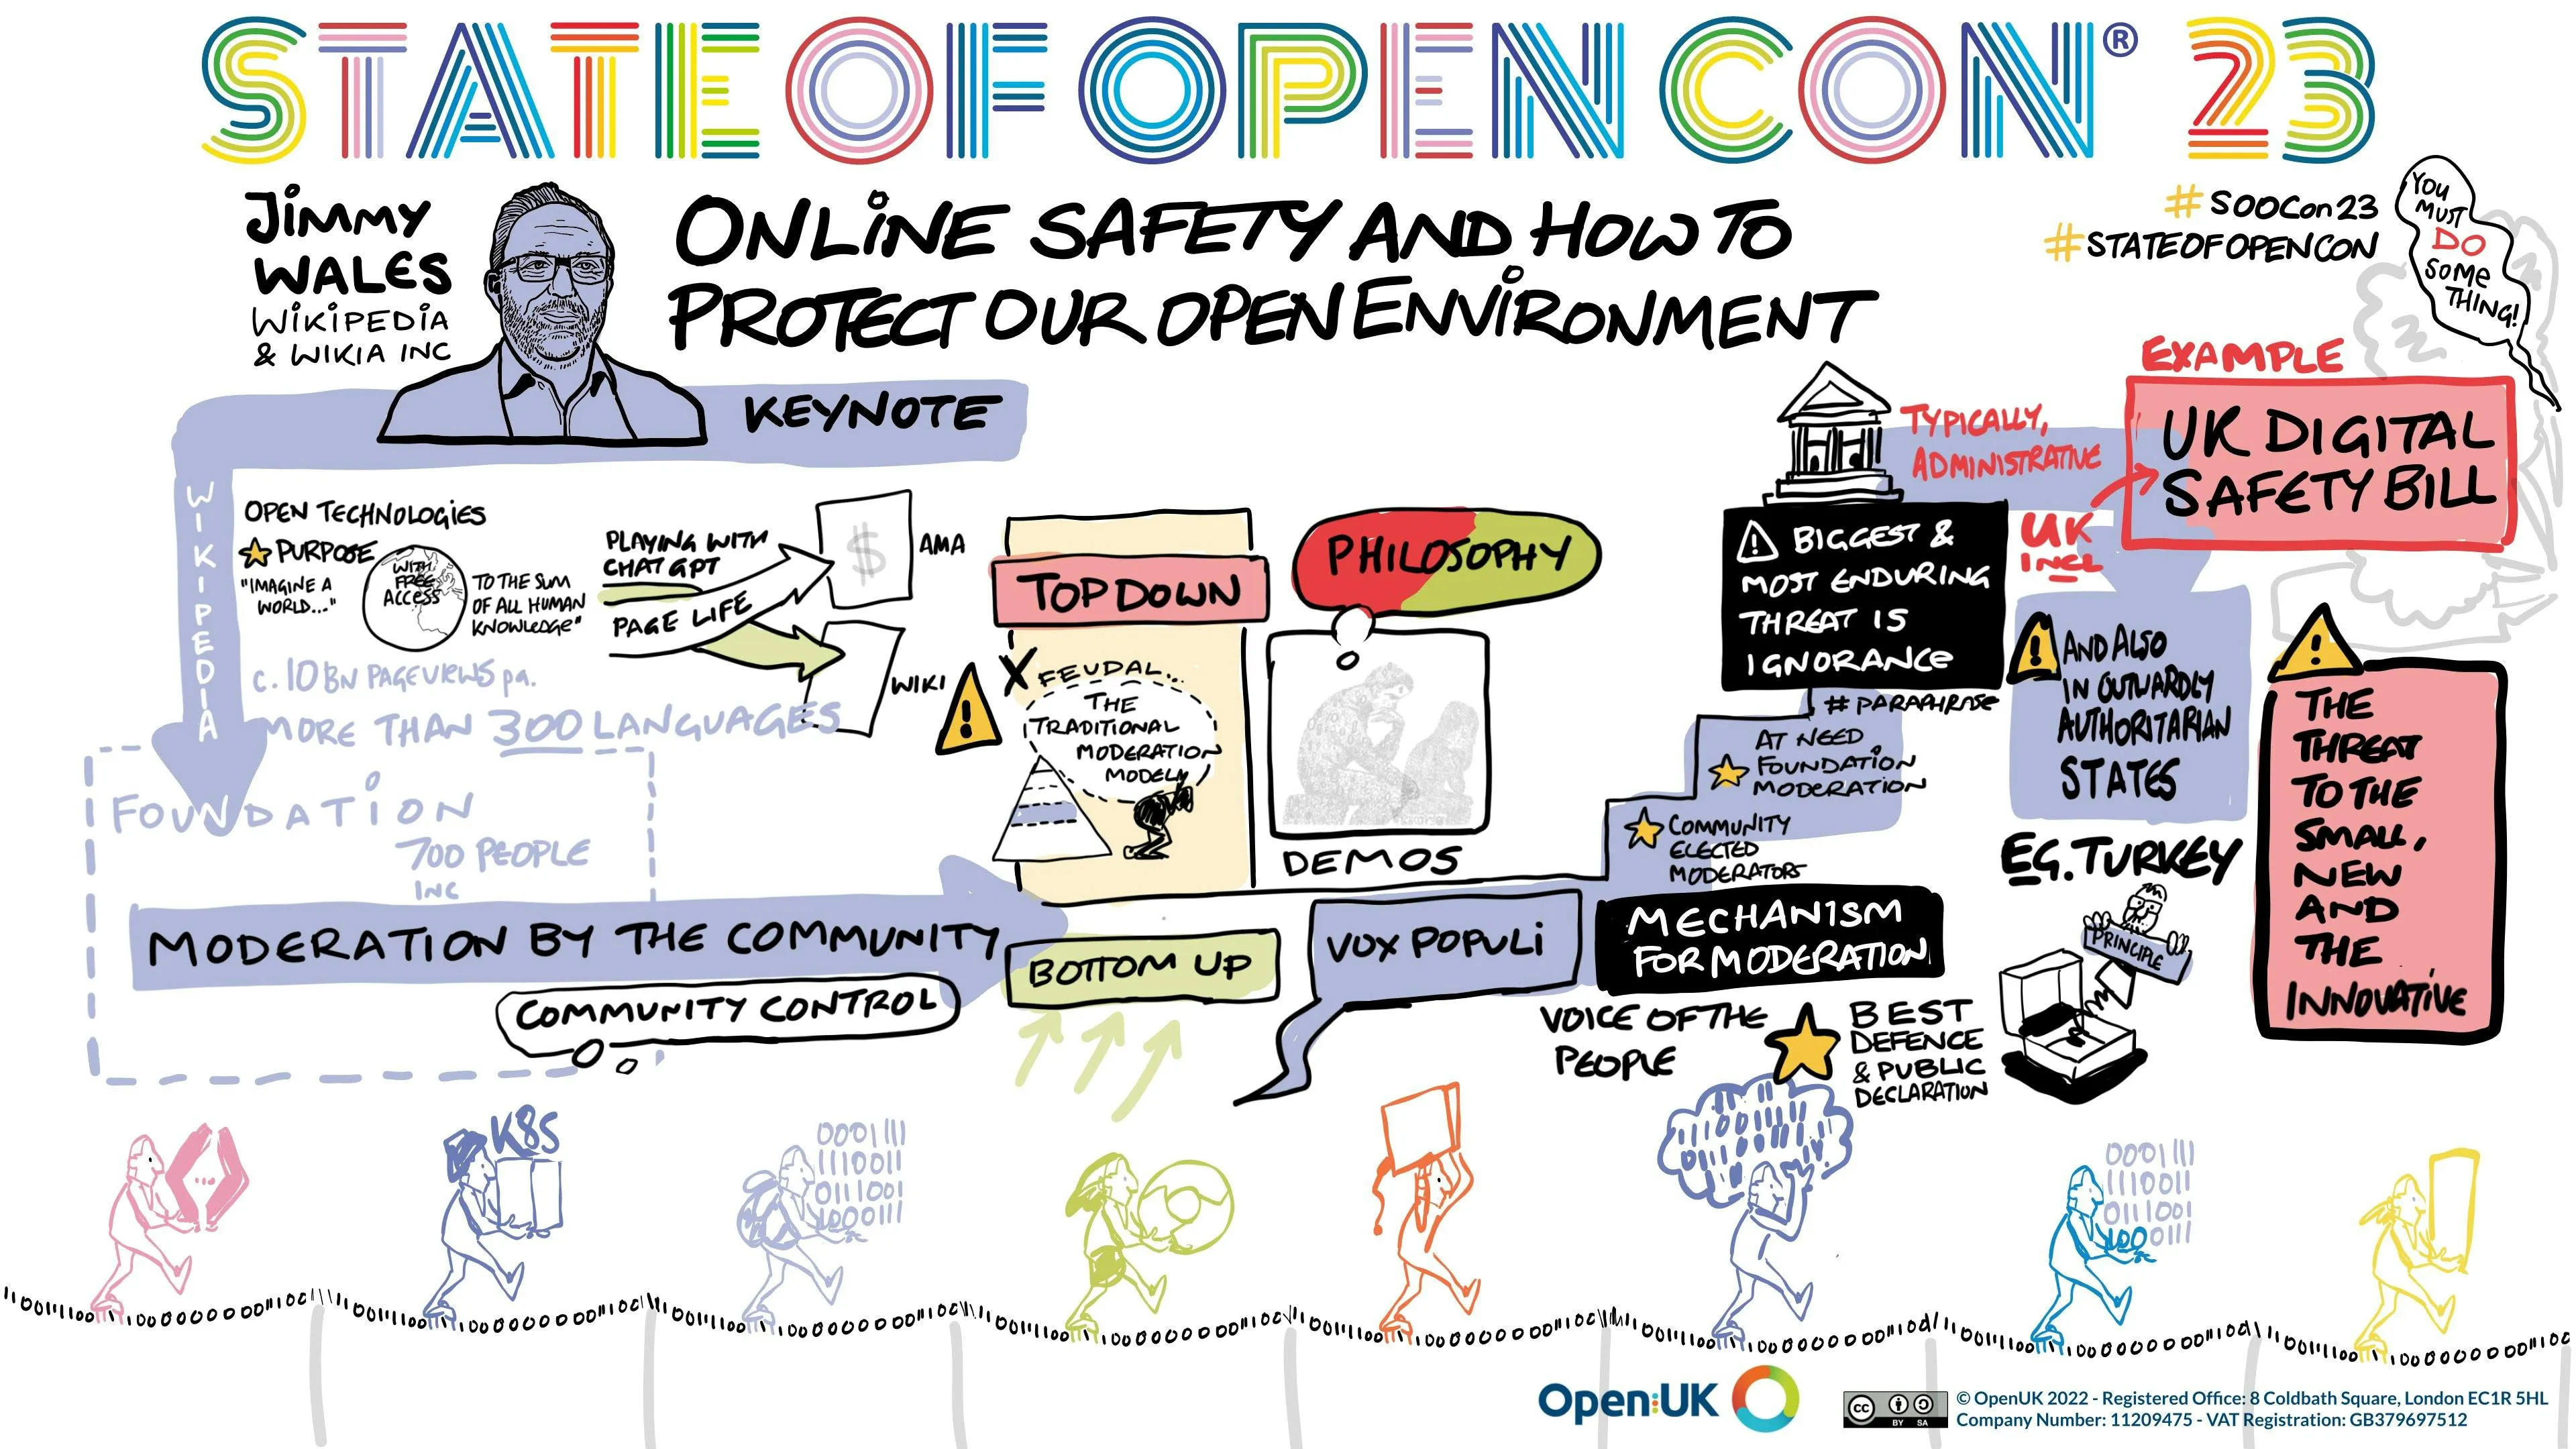 STATE OF OPEN CON® 23
JIMMY
WALES
WIKIPEDIA
& WIKIA INC
ONLINE SAFETY AND HOW TO
PROTECT OUR OPEN ENVIRONMENT
KEYNOTE
#SOOCON23
#STATEOFOPENCON
YOU
MUST
DO
SOME
THING!
WIKIPEDIA
OPEN TECHNOLOGIES
PURPOSE
"IMAGINE A
WORLD..."
WITH
FREE
ACCESS
TO THE SUM
OF ALL HUMAN
KNOWLEDGE"
c. 10BN PAGEVIEWS pa.
MORE THAN 300 LANGUAGES
PLAYING WITH
CHAT GPT
PAGE LIFE
$
AMA
WIKI
FOUNDATION
700 PEOPLE
INC
MODERATION BY THE COMMUNITY
COMMUNITY CONTROL
TOP DOWN
X FEUDAL...
THE
TRADITIONAL
MODERATION
MODEL
BOTTOM UP
PHILOSOPHY
DEMOS
VOX POPULI
VOICE OF THE
PEOPLE
MECHANISM
FOR MODERATION
COMMUNITY
ELECTED
MODERATORS
AT NEED
FOUNDATION
MODERATION
! BIGGEST &
MOST ENDURING
THREAT IS
IGNORANCE
# PARAPHRASE
BEST
DEFENCE
& PUBLIC
DECLARATION
TYPICALLY,
ADMINISTRATIVE
UK
INCL
EXAMPLE
UK DIGITAL
SAFETY BILL
! AND ALSO
IN OUTWARDLY
AUTHORITARIAN
STATES
EG. TURKEY
PRINCIPLE
!
THE
THREAT
TO THE
SMALL,
NEW
AND
THE
INNOVATIVE
K8S
0001111
1110011
0111001
1000111
0001111
1110011
0111001
1000111
Open:UK
CC BY SA
© OpenUK 2022 - Registered Office: 8 Coldbath Square, London EC1R 5HL
Company Number: 11209475 - VAT Registration: GB379697512